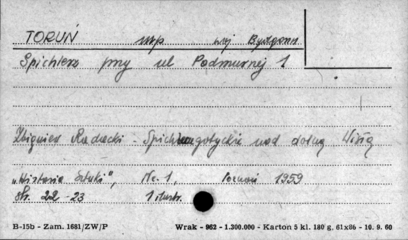 TORUŃ wp woj Bydgoszcz
Spichlerz przy ul Podmurnej 1
Zbigniew Radacki - Spichlerz gotycki nad dolną Wisłą
„Historia Sztuki", Nr. 1, Poznań 1959
str. 22-23 1 ilustr.
B-15b - Zam. 1681/ZW/P Wrak - 962 - 1.300.000 - Karton 5 kl. 180 g, 61x86 - 10. 9. 60